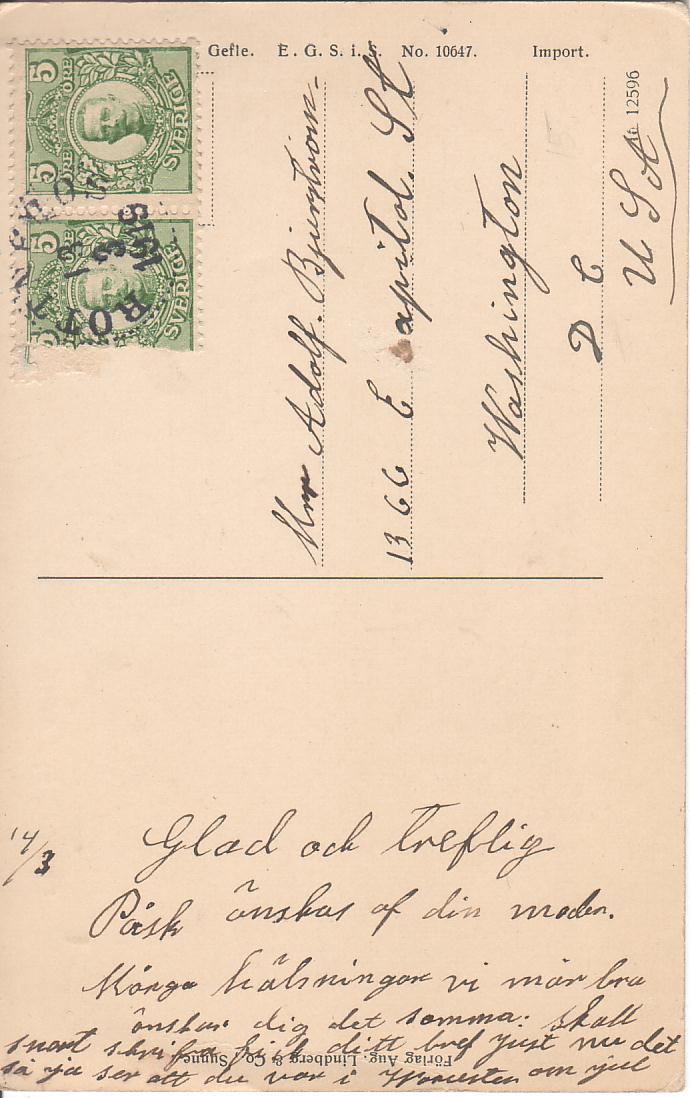 Gefle. E. G. S. i. S. No. 10647. Import.
5 5 ÖRE ÖRE SVERIGE
5 ÖRE SVERIGE
ROTTNEROS
1915
12596
Mr Adolf. Bjurström.
1366 E Capitol. St
Washington
D C
U S A
14/3
Glad och treflig
Påsk önskas af din moder.
Många hälsningar vi mår bra
önskar dig det samma: skall
snart skrifva fick ditt bref just nu det
så ja ser att du var i Worcester om jul
Förlag Aug. Lindberg & Co Sunne